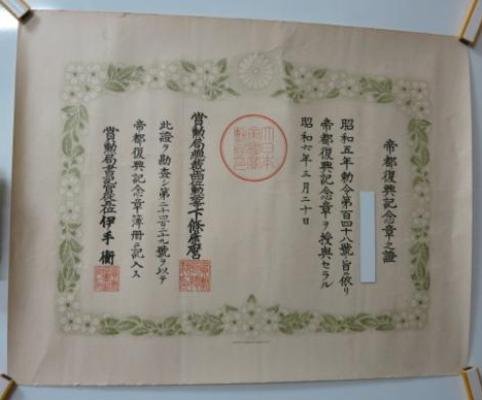 帝都復興記念章之證
昭和五年勅令第百四十八號ノ旨ニ依リ
帝都復興記念章ヲ授與セラル
昭和六年三月二十日
賞勲局總裁正四位勲二等下條康麿
此證ヲ勘査シ第二十四百二十九號ヲ以テ
帝都復興記念章簿册ニ記入ス
賞勲局書記官從六位伊手衡